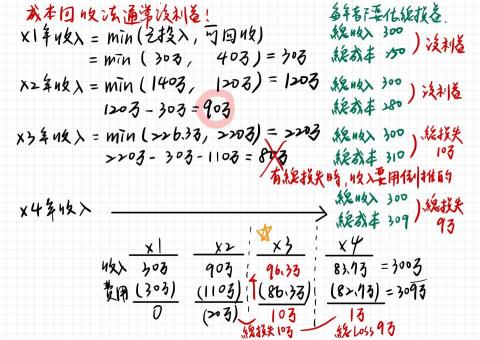 成本回收法通常沒利益!
每年都要估總損益.
X1年收入 = min(已投入, 可回收)
= min( 30万, 40万) = 30万
總收入 300
總成本 250 ) 沒利益
X2年收入 = min( 140万, 120万) = 120万
120万 - 30万 = 90万
總收入 300
總成本 280 ) 沒利益
X3年收入 = min( 226.3万, 220万) = 220万
220万 - 30万 - 110万 = 80万
總收入 300
總成本 310 ) 總損失 10万
有總損失時, 收入要用倒推的
X4年收入
總收入 300
總成本 309 ) 總損失 9万
X1 X2 X3 X4
收入 30万 90万 96.3万 83.7万 = 300万
費用 (30万) (110万) (86.3万) (82.7万) = 309万
0 (20万) 10万 1万
總損失10万 總Loss 9万